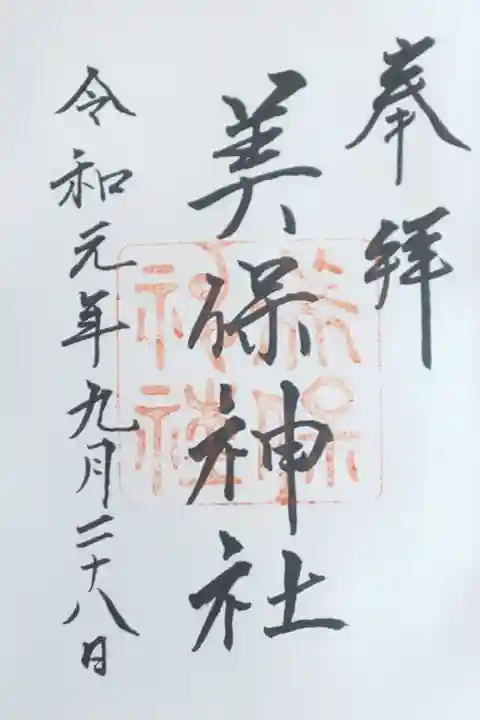 奉拝
美保神社
美保神社
令和元年九月二十八日